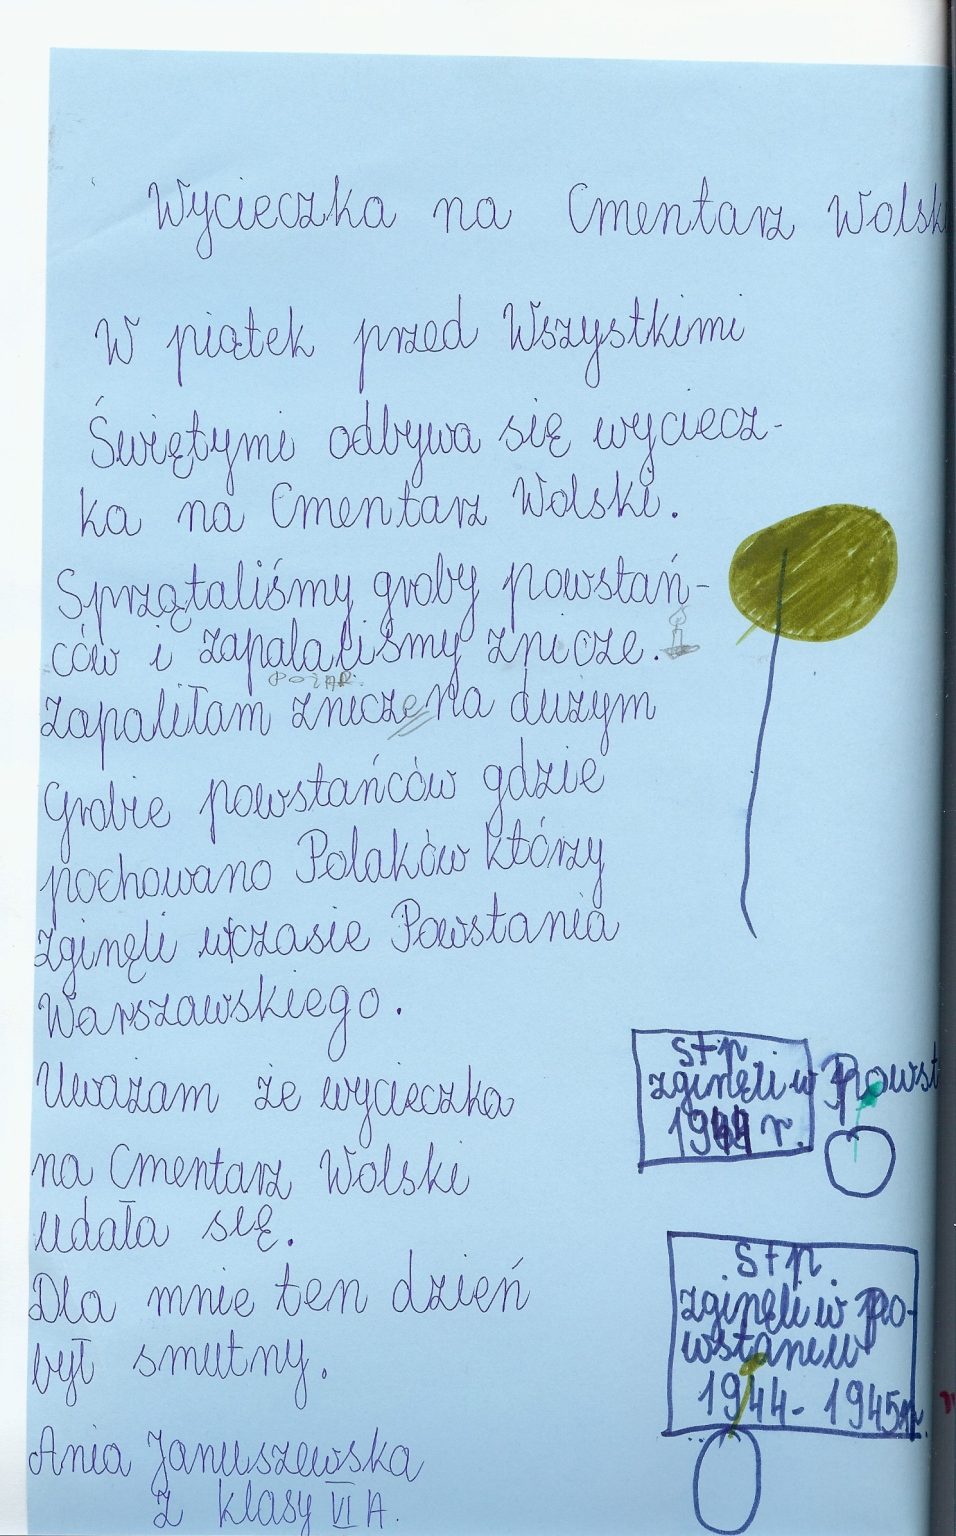 Wycieczka na Cmentarz Wolsk
W piątek przed Wszystkimi
Świętymi odbywa się wyciecz-
ka na Cmentarz Wolski.
Sprzątaliśmy groby powstań-
ców i zapalaliśmy znicze.
POŻAR.
Zapaliłam znicze na dużym
Grobie powstańców gdzie
pochowano Polaków którzy
zginęli wczasie Powstania
Warszawskiego.
Uważam że wycieczka
na Cmentarz Wolski
udała się.
Dla mnie ten dzień
był smutny.
Ania Januszewska
z klasy VI A.
S+p
zginęli w Powst
1944 r.
S+p.
zginęli w Po-
wstaniu
1944- 1945r.